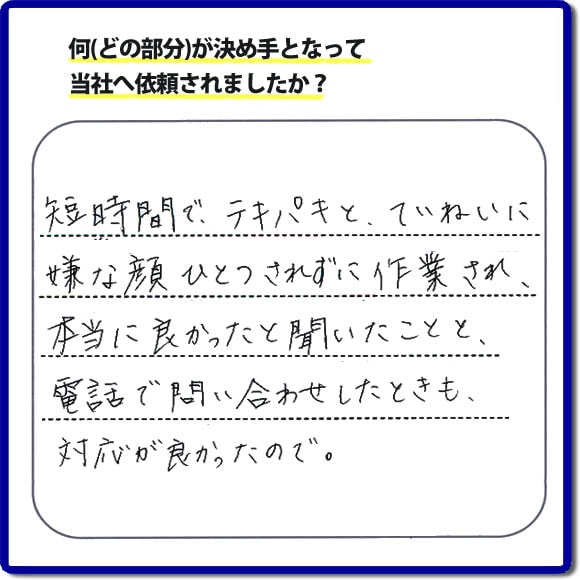 何(どの部分)が決め手となって
当社へ依頼されましたか？
短時間で、テキパキと、ていねいに
嫌な顔ひとつされずに作業され、
本当に良かったと聞いたことと、
電話で問い合わせしたときも、
対応が良かったので。